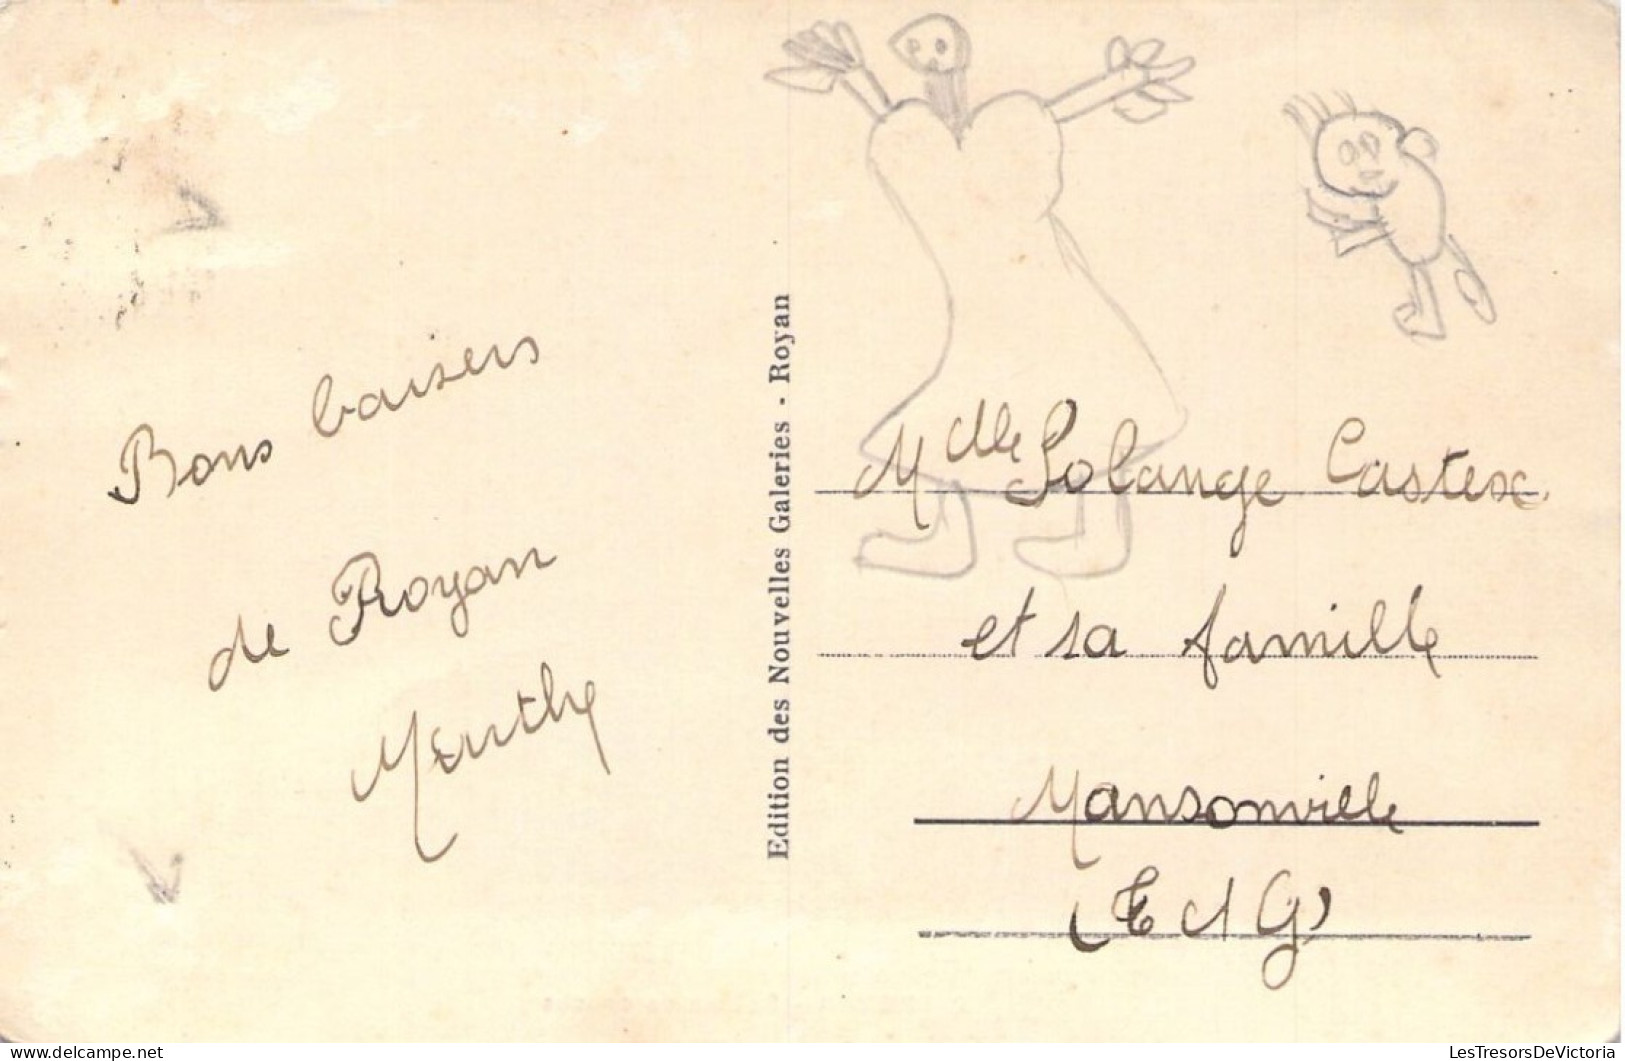 Bons baisers
de Royan
Edition des Nouvelles Galeries - Royan
Mdlle Solange Castex
et sa famille
Mansonville
(T et G)
LesTresorsDeVictoria